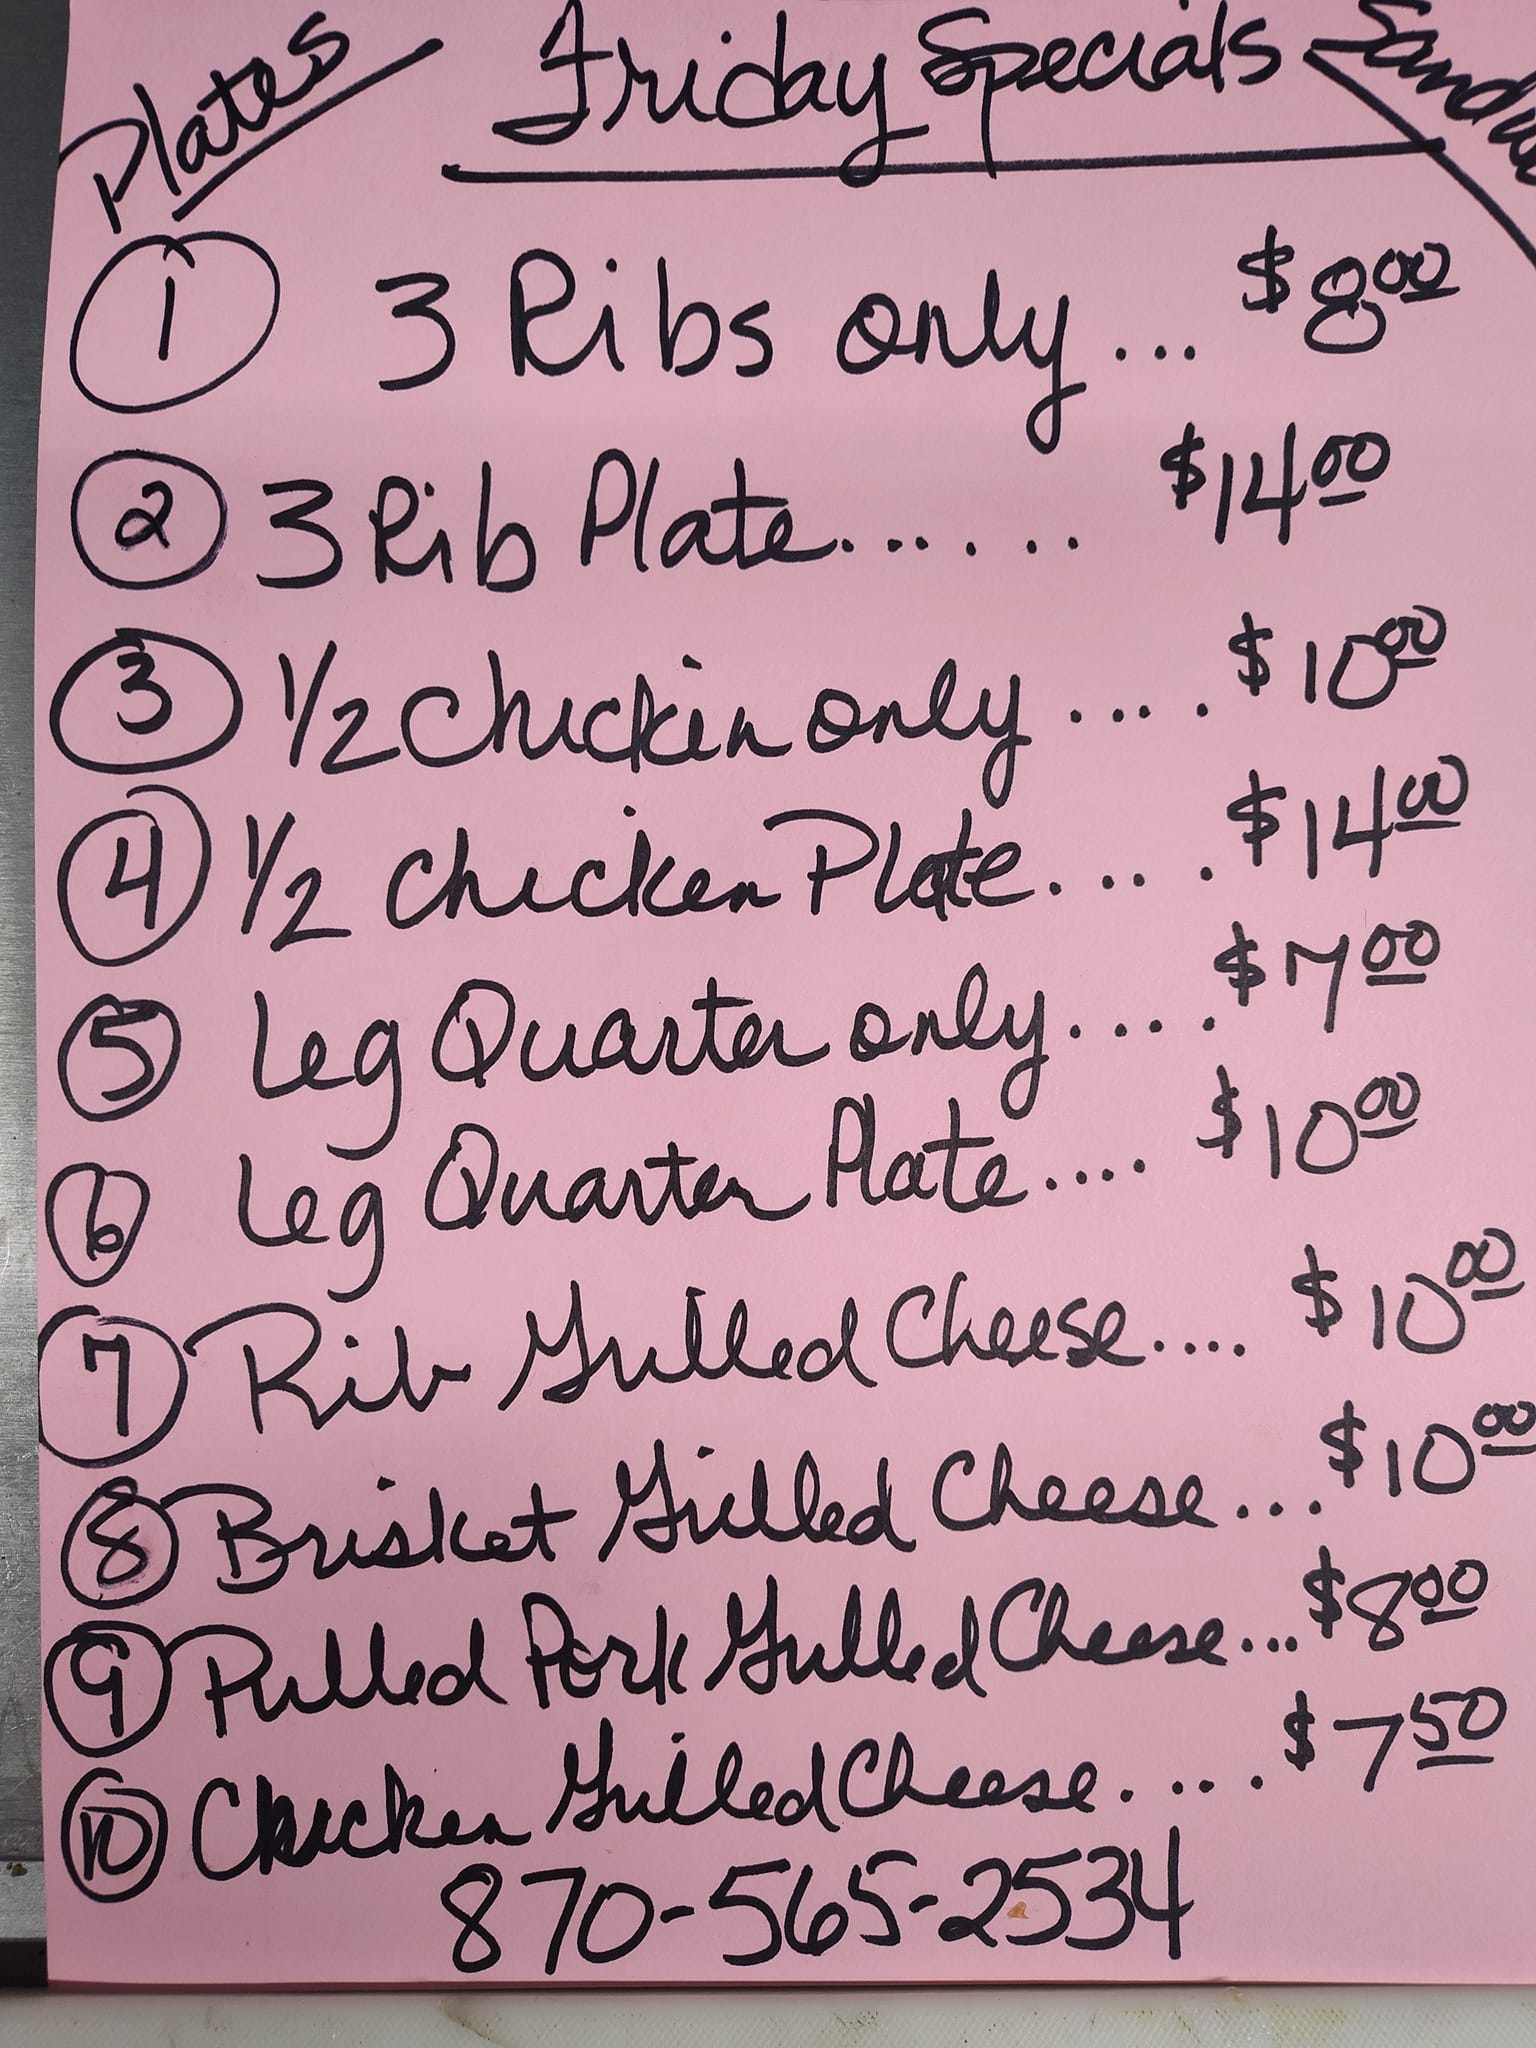 Plates
Friday Specials
1 3 Ribs only... $8.00
2 3 Rib Plate...... $14.00
3 1/2 Chicken only .... $10.00
4 1/2 Chicken Plate.... $14.00
5 Leg Quarter only.... $7.00
6 Leg Quarter Plate.... $10.00
7 Rib Grilled Cheese.... $10.00
8 Brisket Grilled Cheese... $10.00
9 Pulled Pork Grilled Cheese... $8.00
10 Chicken Grilled Cheese.... $7.50
870-565-2534